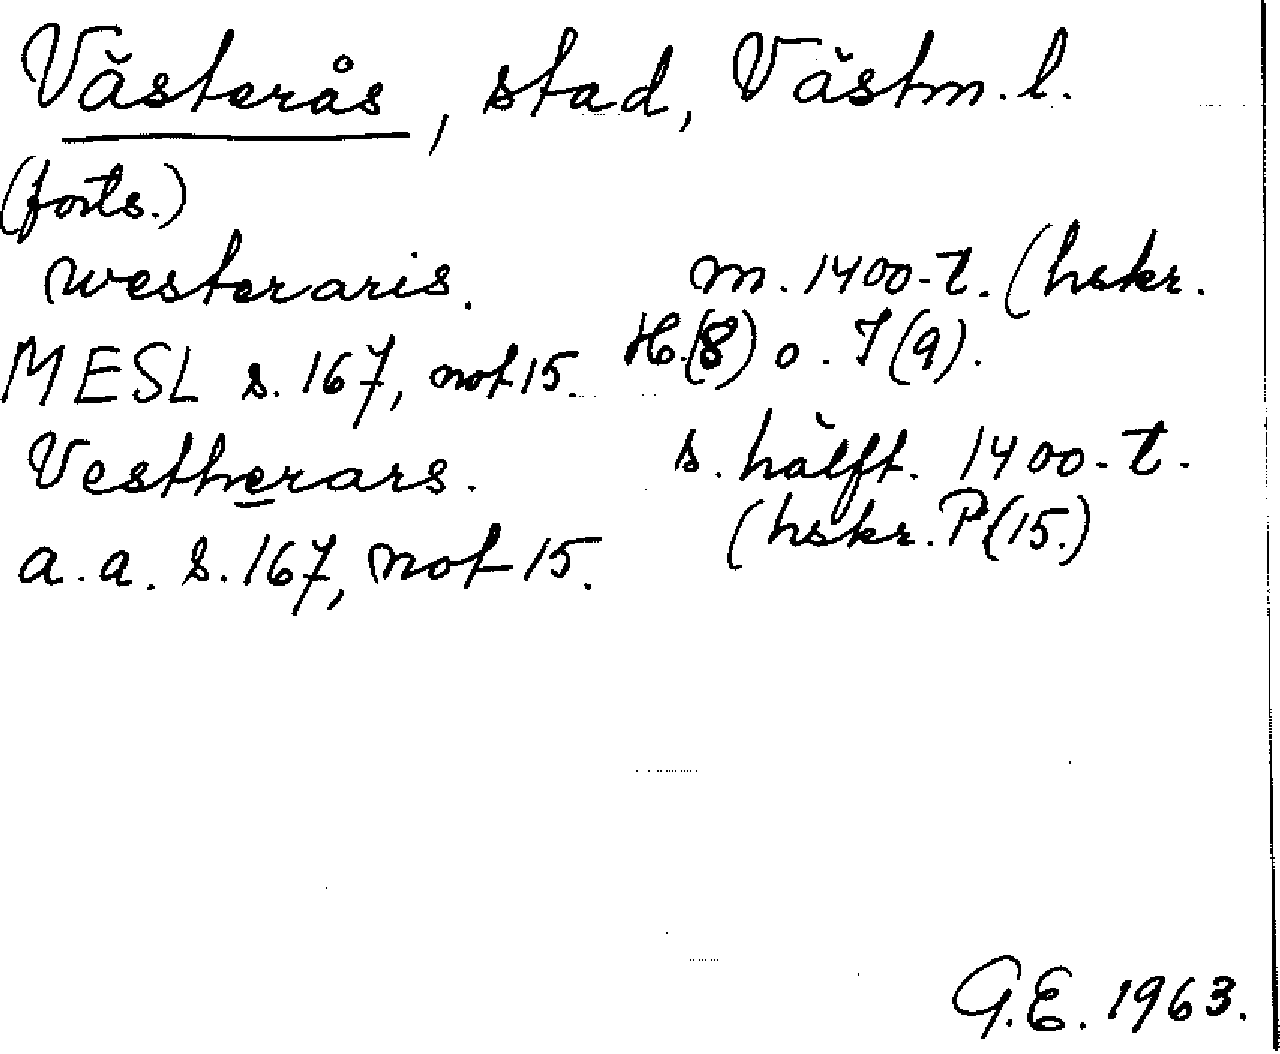 Västerås, stad, Västm. l.
(forts.)
westeraris. m. 1400-t. (hskr.
MESL s. 167, not 15. H.(8) o. I (9).
Vestherars. s. hälft. 1400-t.
(hskr. P(15.)
a. a. s. 167, not 15.
G.E. 1963.